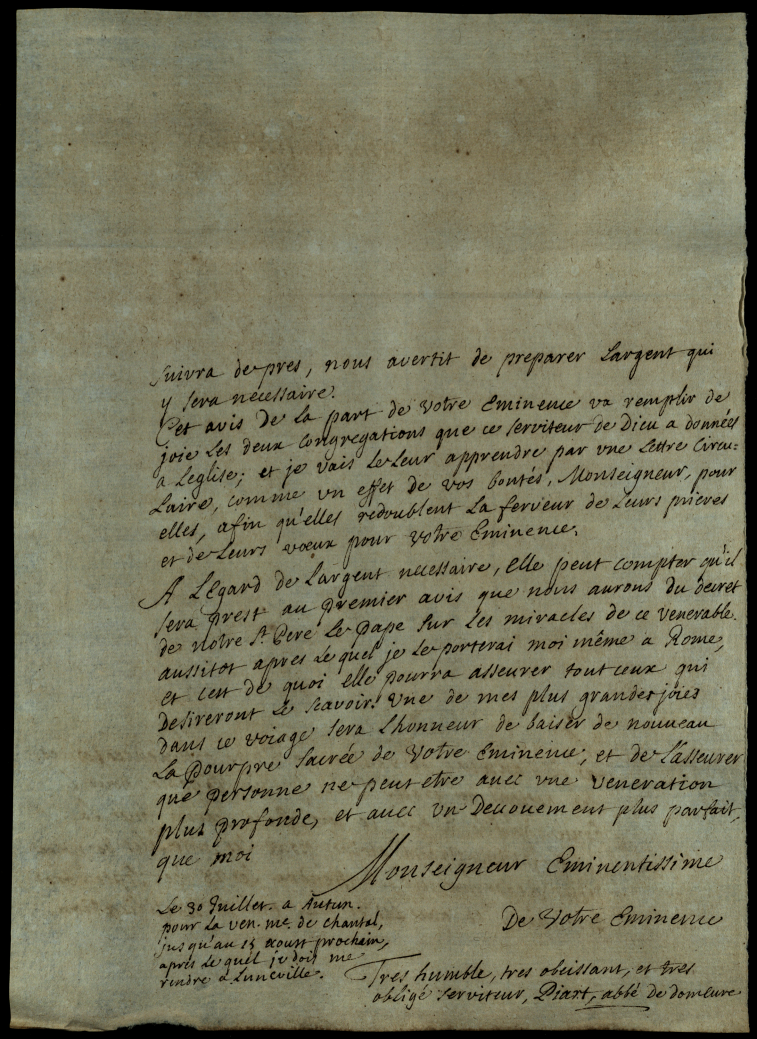 suivra de pres, nous avertit de preparer Largent qui
y sera necessaire.
Cet avis de la part de Votre Eminence va remplir de
joie les deux congregations que ce serviteur de Dieu a données
a Leglise; et je vais Le Leur apprendre par vne Lettre Circu=
Laire, comme vn effet de vos bontés, Monseigneur, pour
elles, afin qu'elles redoublent La ferveur de Leurs prieres
et de Leurs vœux pour Votre Eminence.
A LEgard de Largent necessaire, Elle peut compter qu'il
sera prest au premier avis que nous aurons du decret
de notre St. Pere Le Pape sur Les miracles de ce venerable.
aussitot apres Le quel je Le porterai moi même a Rome,
et c'est de quoi elle pourra asseurer tout ceux qui
Desireront Le scavoir. Une de mes plus grandes joies
dans ce voiage sera Lhonneur de baiser de nouveau
La pourpre sacrée de Votre Eminence, et de L'asseurer
que personne ne peut etre auec vne veneration
plus profonde, et auec vn Deuouement plus parfait,
que moi
Monseigneur Eminentissime
Le 30 Juillet. a Autun.
pour La ven. me. de chantal,
jusqu'au 15 aoust prochain,
apres Le quel je dois me
rendre a Luneville.
De Votre Eminence
Tres humble, tres obeissant, et tres
obligé serviteur, Piart, abbé de domevre